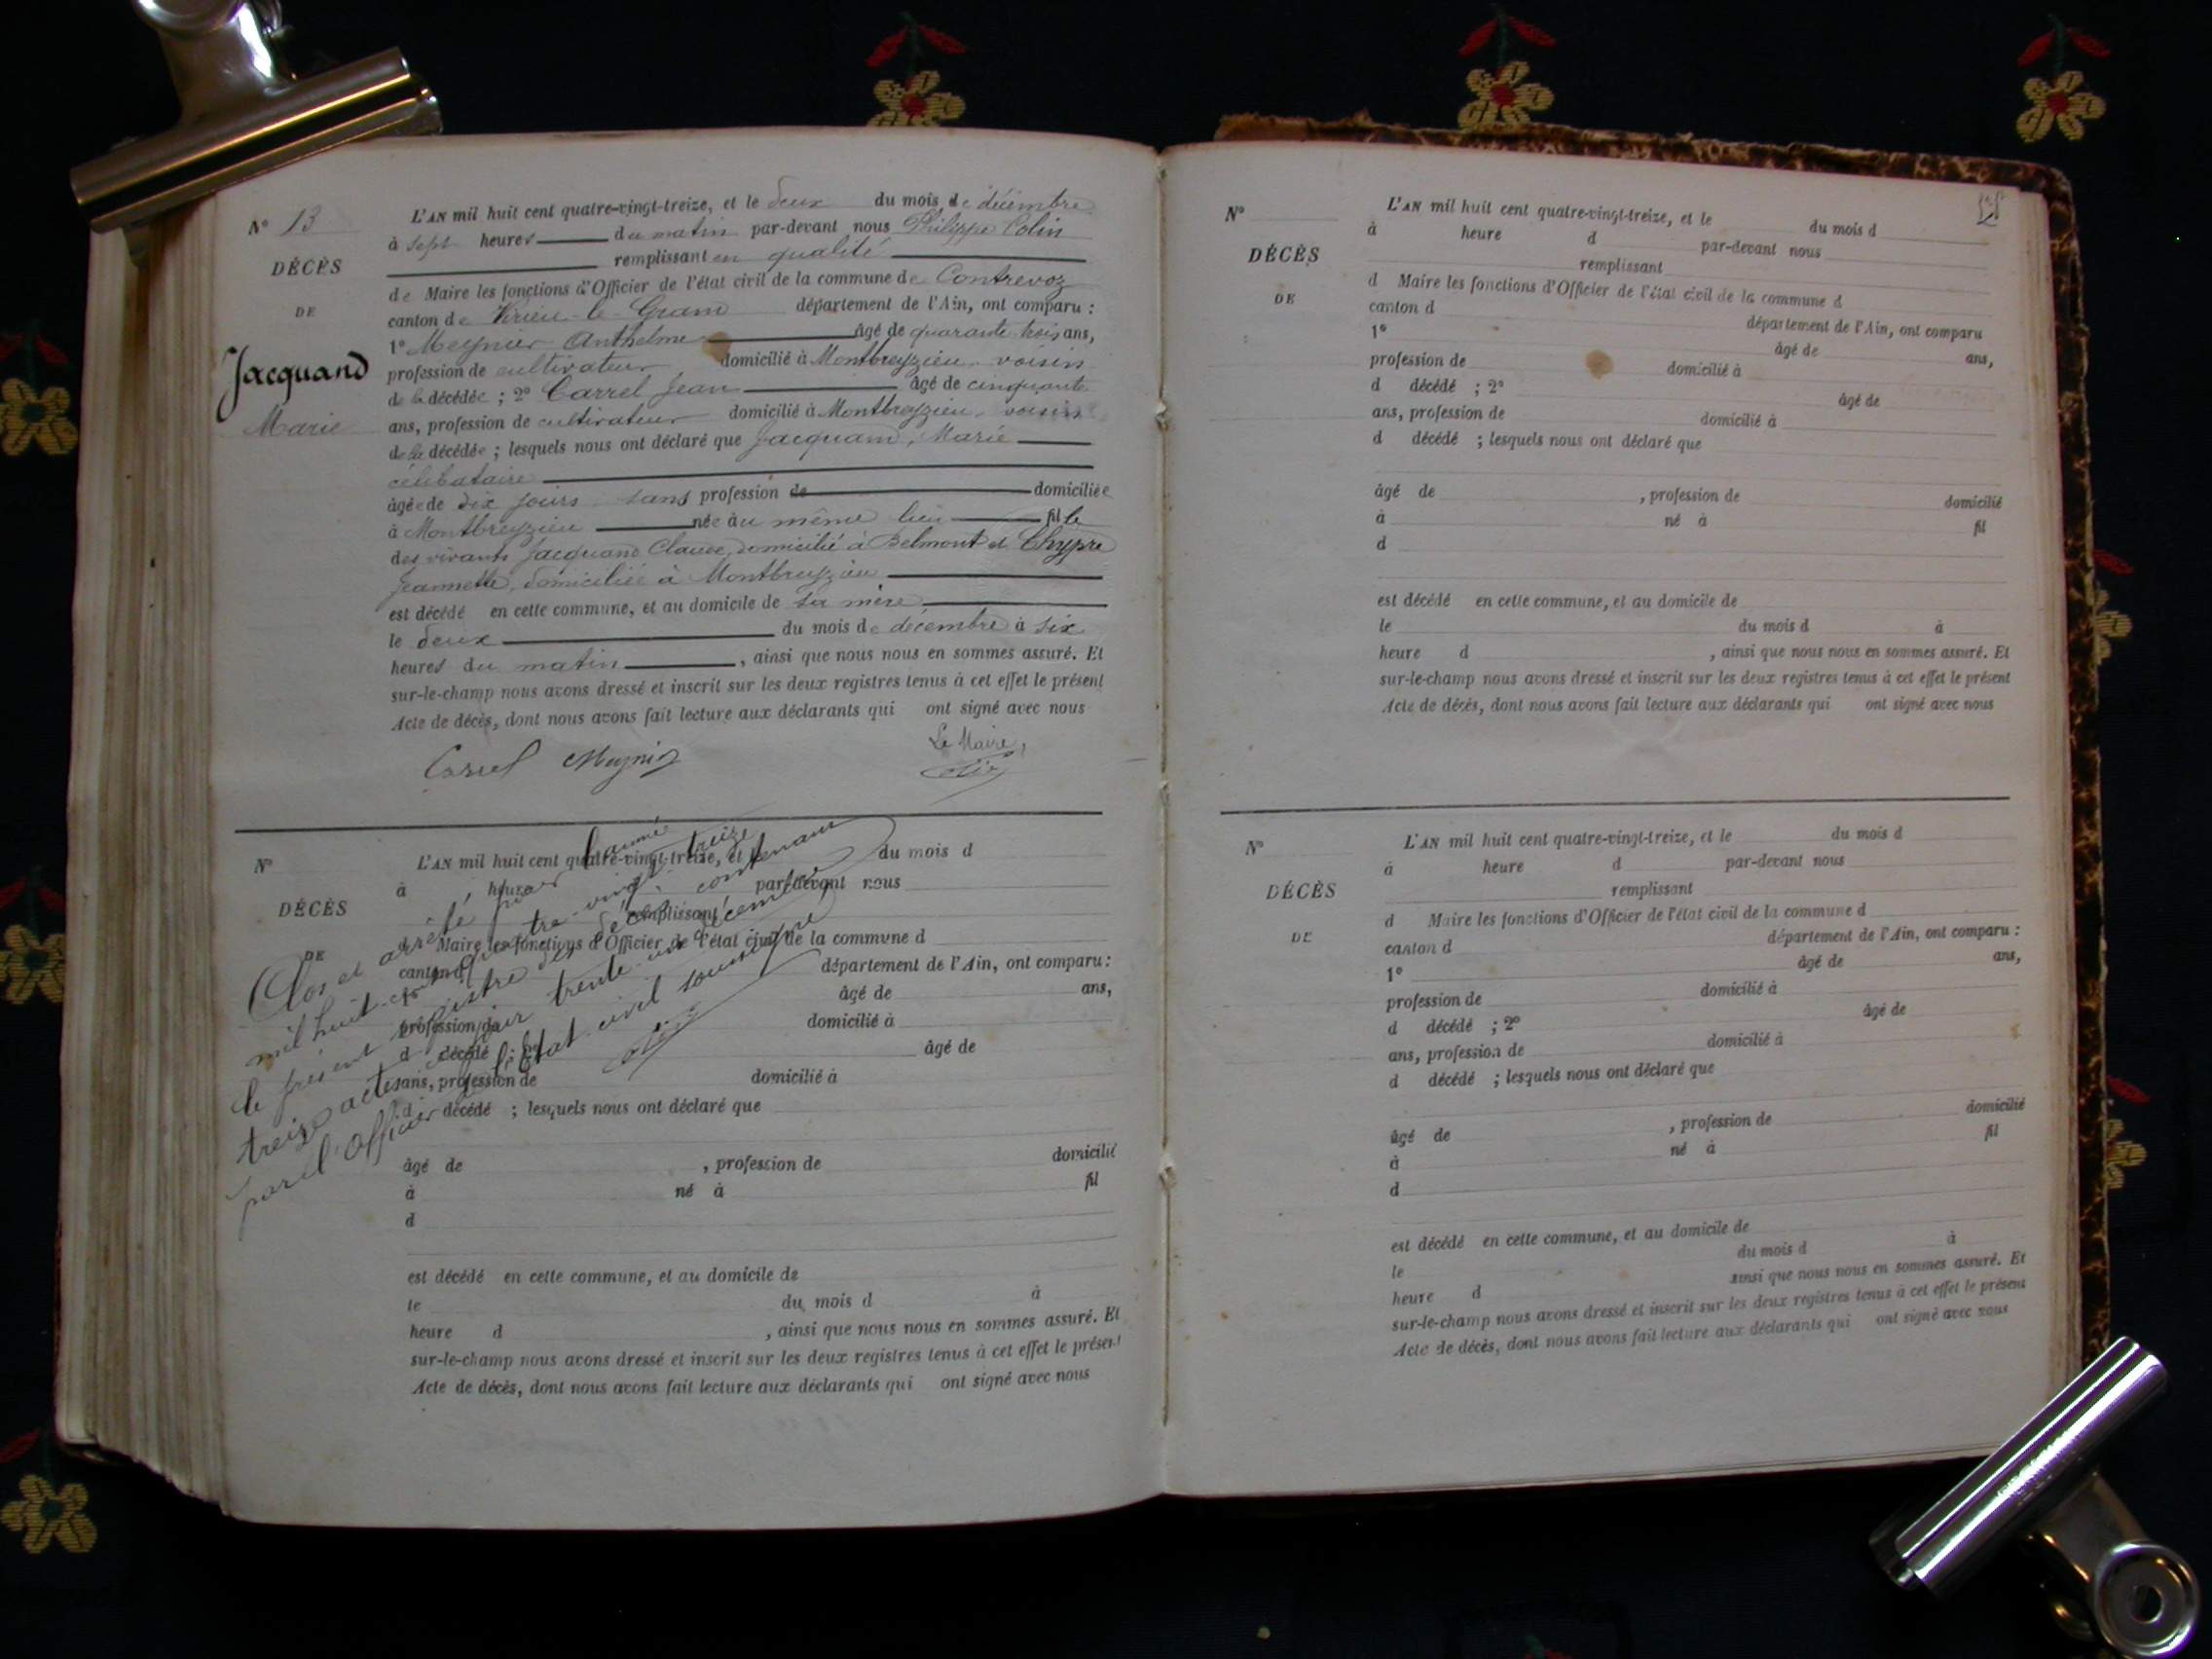 N° 13
DÉCÈS
DE
Jacquand
Marie
L'AN mil huit cent quatre-vingt-treize, et le deux du mois de décembre
à sept heures du matin par-devant nous Philippe Colin
remplissant en qualité
de Maire les fonctions d'Officier de l'état civil de la commune de Contrevoz
canton de Virieu-le-Grand département de l'Ain, ont comparu :
1° Meynier Anthelme âgé de quarante trois ans,
profession de cultivateur domicilié à Montbreyzieu voisin
de la décédée ; 2° Carrel Jean âgé de cinquante
ans, profession de cultivateur domicilié à Montbreyzieu voisin
de la décédée ; lesquels nous ont déclaré que Jacquand, Marie
célibataire
âgée de dix jours sans profession de domiciliée
à Montbreyzieu née au même lieu fille
des vivants Jacquand Claude, domicilié à Belmont et Chypre
Jeannette, domiciliée à Montbreyzieu
est décédé en cette commune, et au domicile de sa mère
le deux du mois de décembre à six
heures du matin, ainsi que nous nous en sommes assuré. Et
sur-le-champ nous avons dressé et inscrit sur les deux registres tenus à cet effet le présent
Acte de décès, dont nous avons fait lecture aux déclarants qui ont signé avec nous
Carrel Meynier Le Maire,
Colin
N°
DÉCÈS
DE
L'AN mil huit cent quatre-vingt-treize, et le du mois d
à heure par-devant nous
remplissant
Maire les fonctions d'Officier de l'état civil de la commune d
canton d département de l'Ain, ont comparu :
âgé de ans,
profession de domicilié à
d décédé ; 2° âgé de
ans, profession de domicilié à
d décédé ; lesquels nous ont déclaré que
âgé de , profession de domicilié
à né à fil
d
est décédé en cette commune, et au domicile de
le du mois d à
heure d , ainsi que nous nous en sommes assuré. Et
sur-le-champ nous avons dressé et inscrit sur les deux registres tenus à cet effet le présent
Acte de décès, dont nous avons fait lecture aux déclarants qui ont signé avec nous
Clos et arrêté pour l'année
mil huit cent quatre-vingt-treize
le présent registre des décès, contenant
treize actes, ce jour trente-un décembre
par l'Officier de l'Etat civil soussigné
Colin
N°
DÉCÈS
DE
L'AN mil huit cent quatre-vingt-treize, et le du mois d
à heure d par-devant nous
remplissant
d Maire les fonctions d'Officier de l'état civil de la commune d
canton d département de l'Ain, ont comparu
1° âgé de ans,
profession de domicilié à
d décédé ; 2° âgé de
ans, profession de domicilié à
d décédé ; lesquels nous ont déclaré que
âgé de , profession de domicilié
à né à fil
d
est décédé en cette commune, et au domicile de
le du mois d à
heure d , ainsi que nous nous en sommes assuré. Et
sur-le-champ nous avons dressé et inscrit sur les deux registres tenus à cet effet le présent
Acte de décès, dont nous avons fait lecture aux déclarants qui ont signé avec nous
N°
DÉCÈS
DE
L'AN mil huit cent quatre-vingt-treize, et le du mois d
à heure d par-devant nous
remplissant
d Maire les fonctions d'Officier de l'état civil de la commune d
canton d département de l'Ain, ont comparu :
1° âgé de ans,
profession de domicilié à
d décédé ; 2° âgé de
ans, profession de domicilié à
d décédé ; lesquels nous ont déclaré que
âgé de , profession de domicilié
à né à fil
d
est décédé en cette commune, et au domicile de
le du mois d à
heure d ainsi que nous nous en sommes assuré. Et
sur-le-champ nous avons dressé et inscrit sur les deux registres tenus à cet effet le présent
Acte de décès, dont nous avons fait lecture aux déclarants qui ont signé avec nous